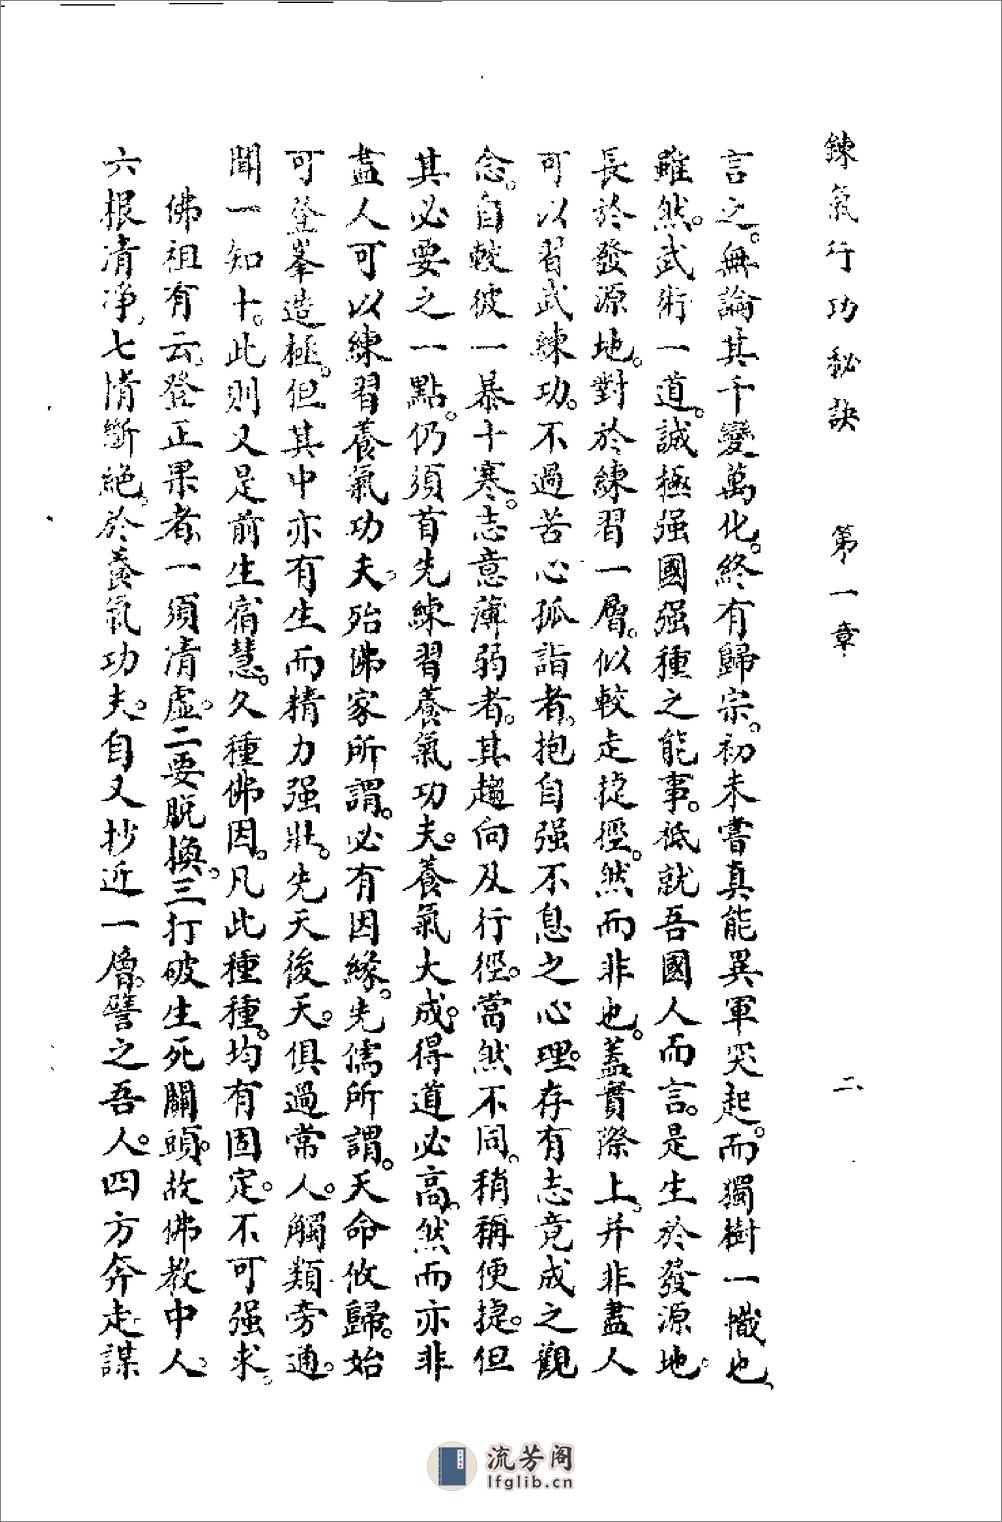 鍊氣行功秘訣　第一章　二
言之。無論其千變萬化。終有歸宗。初未嘗真能異軍突起。而獨樹一幟也。
雖然。武術一道。誠極强國强種之能事。祗就吾國人而言。是生於發源地。
長於發源地。對於練習一層。似較走捷徑。然而非也。蓋實際上。并非盡人
可以習武練功。不過苦心孤詣者。抱自强不息之心理。存有志竟成之觀
念。自較彼一暴十寒。志意薄弱者。其趨向及行徑。當然不同。稍稱便捷。但
其必要之一點。仍須首先練習養氣功夫。養氣大成。得道必高。然而亦非
盡人可以練習養氣功夫。殆佛家所謂。必有因緣。先儒所謂。天命攸歸。始
可登峯造極。但其中亦有生而精力强壯。先天後天。俱過常人。觸類旁通。
聞一知十。此則又是前生宿慧。久種佛因。凡此種種。均有固定。不可强求。
佛祖有云。登正果者。一須清虛。二要脱換。三打破生死關頭。故佛教中人。
六根清净。七情斷絶。於養氣功夫。自又抄近一層。譬之吾人。四方奔走。謀
流芳阁
lfglib.cn